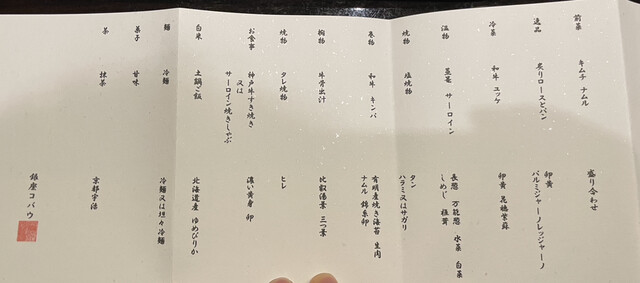 前菜 キムチ ナムル 盛り合わせ
逸品 炙りロースとパン 卵黄 パルミジャーノレッジャーノ
冷菜 和牛 ユッケ 卵黄 花穂紫蘇
温物 サーロイン 長葱 万能葱 水菜 白菜
しめじ 椎茸
焼物 塩焼物 タン
ハラミ又はサガリ
巻物 和牛 キンパ 有明産焼き海苔 生肉
ナムル 錦糸卵
椀物 牛骨出汁 比叡湯葉 三つ葉
焼物 タレ焼物 ヒレ
お食事 神戸牛すき焼き 濃い黄身 卵
又は
サーロイン焼きしゃぶ
白米 土鍋ご飯 北海道産 ゆめぴりか
麺 冷麺 冷麺又は坦々冷麺
菓子 甘味
茶 抹茶 京都宇治
銀座コバウ